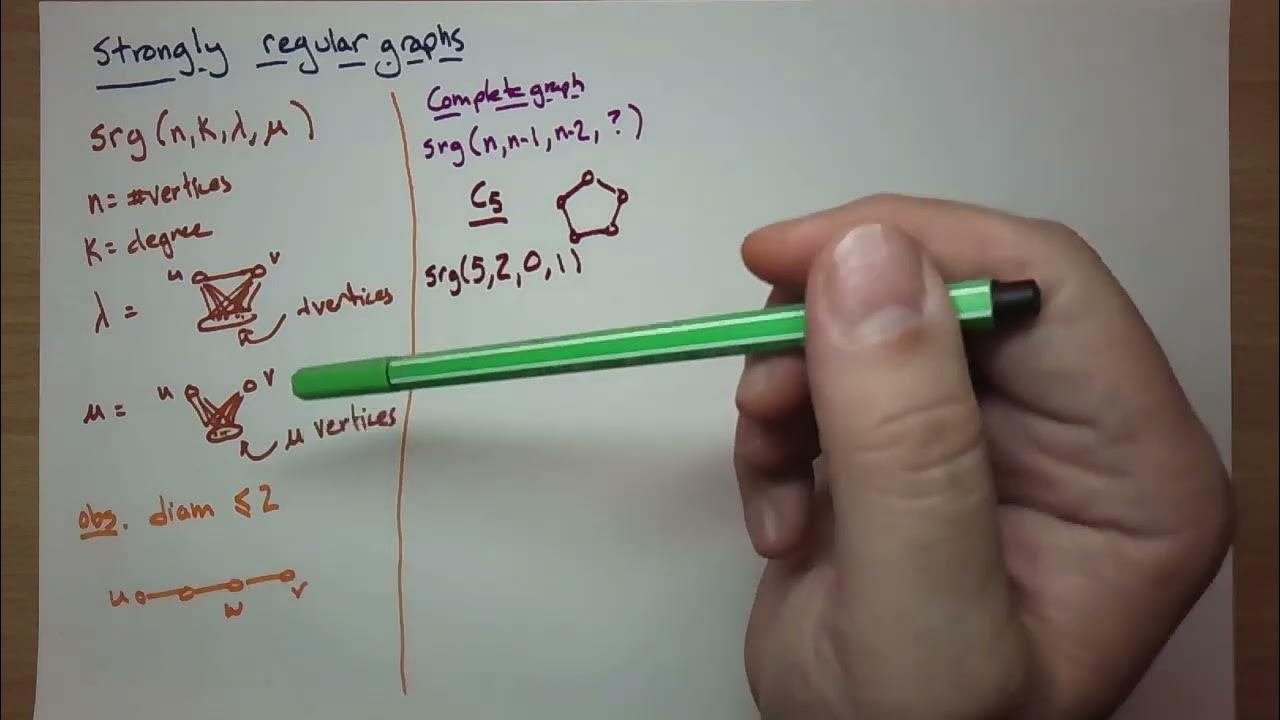 Strongly regular graphs
srg(n,k,λ,μ)
n = #vertices
k = degree
u v
λ =
λ vertices
u v
μ =
μ vertices
obs. diam ≤ 2
u w v
Complete graph
srg(n, n-1, n-2, ?)
C5
srg(5,2,0,1)